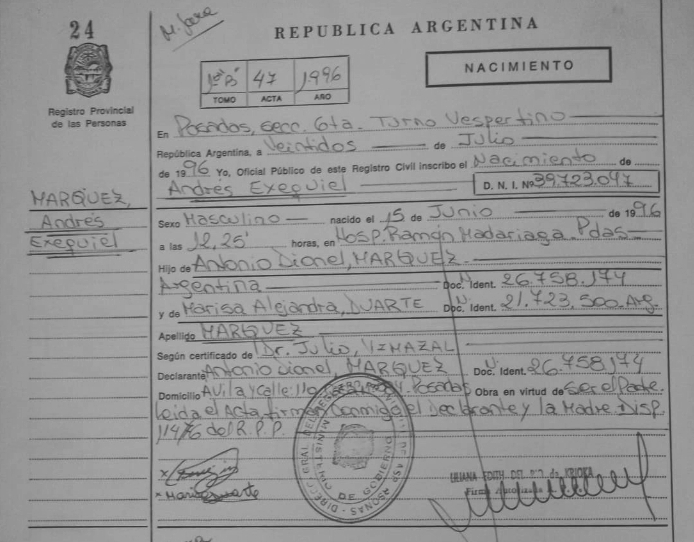 24
M. Jara
REPUBLICA ARGENTINA
Registro Provincial
de las Personas
1º "B" 47 1996
TOMO ACTA AÑO
NACIMIENTO
En Posadas, secc. 6ta. Turno Vespertino
República Argentina, a Veintidos de Julio
de 1996 Yo, Oficial Público de este Registro Civil inscribo el Nacimiento de
Andrés Exequiel D. N. I. Nº 39.723.047
MARQUEZ,
Andrés
Exequiel
Sexo Masculino nacido el 15 de Junio de 1996
a las 12,25' horas, en Hosp. Ramón Madariaga. Pdas
Hijo de Antonio Lionel, MARQUEZ.
Argentina Doc. Ident. 26.758.174
y de Marisa Alejandra, DUARTE Doc. Ident. 21.723.500 Arg.
Apellido MARQUEZ
Según certificado de Dr. Julio,
Declarante Antonio Lionel, MARQUEZ Doc. Ident. 26.758.174
Domicilio Avila y Calle 110 Posadas Obra en virtud de Ser el Padre
Leida el Acta firman Conmigo el Declarante y la Madre. DISP
114/76 del R.P.P.
x
x Marisa Duarte
LILIANA EDITH
DE GOBIERNO